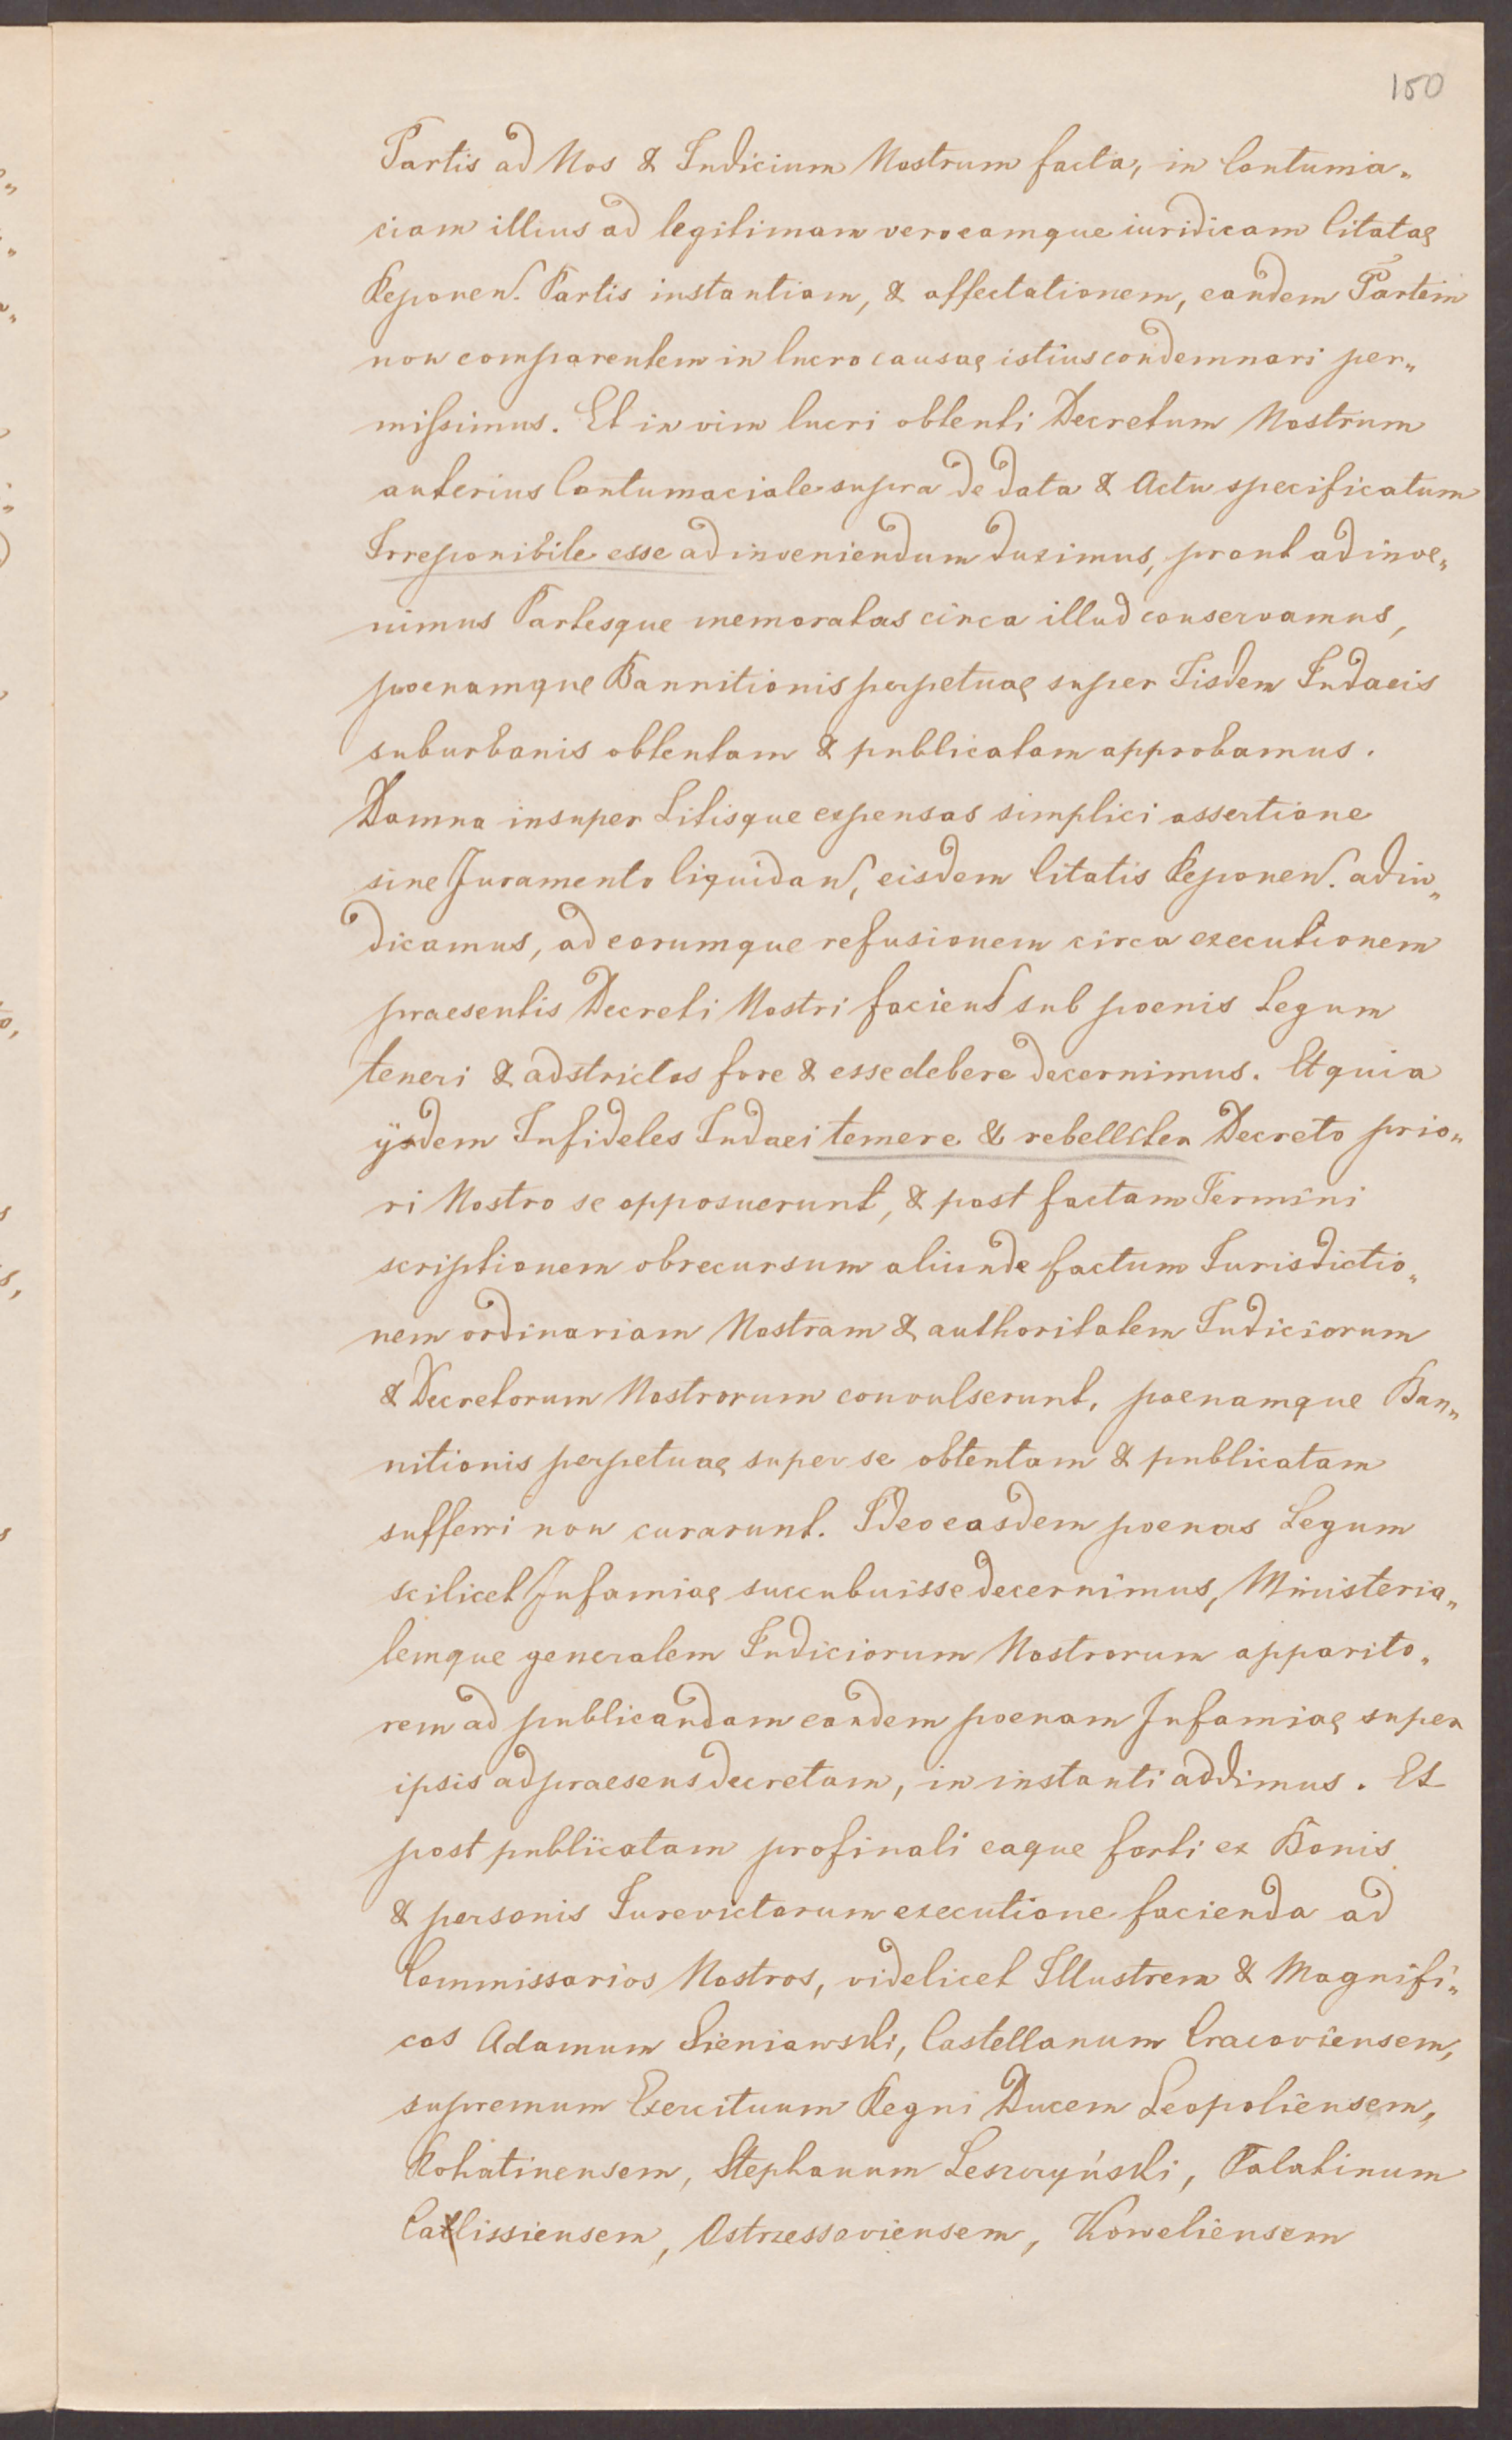 150
Partis ad Nos & Iudicium Nostrum facta, in Contuma„
ciam illius ad legitimam veroeamque iuridicam Citatae
Reponen. Partis instantiam, & affectationem, eandem Partem
non comparentem in lucro causae istius condemnari per„
missimus. Et in vim lucri obtenti Decretum Nostrum
anterius Contumaciale supra de data & Actu specificatum
Irreponibile esse adinveniendum duximus, prout adinve„
nimus Partesque memoratas circa illud conservamus,
poenamque Bannitionis perpetuae super Iisdem Iudaeis
suburbanis obtentam & publicatam approbamus.
Damna insuper Litisque expensas simplici assertione
sine Juramento liquidan, eisdem Citatis Reponen. adiu„
dicamus, ad eorumque refusionem circa executionem
praesentis Decreti Nostri faciend sub poenis Legum
teneri & adstrictos fore & esse debere decernimus. Et quia
ijsdem Infideles Iudaei temere & rebelliter Decreto prio„
ri Nostro se opposuerunt, & post factam Termini
scriptionem obrecursum aliunde factum Iurisdictio„
nem ordinariam Nostram & authoritatem Iudiciorum
& Decretorum Nostrorum convulserunt, poenamque Ban„
nitionis perpetuae super se obtentam & publicatam
sufferri non curarunt. Ideo easdem poenas Legum
scilicet Infamiae succubuisse decernimus, Ministeria„
lemque generalem Iudiciorum Nostrorum apparito„
rem ad publicandam eandem poenam Infamiae super
ipsis ad praesens decretam, in instanti addimus. Et
post publicatam profinali eaque forti ex Bonis
& personis Iurevictorum executione facienda ad
Commissarios Nostros, videlicet Illustrem & Magnifi„
cos Adamum Sieniawski, Castellanum Cracoviensem,
supremum Exercituum Regni Ducem Leopoliensem,
Rohatinensem, Stephanum Leszczyński, Palatinum
Callissiensem, Ostrzessoviensem, Koweliensem